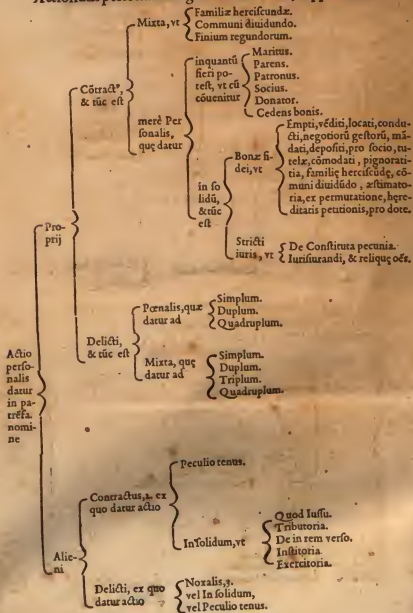 Mixta, vt
Familiæ herciscundæ.
Communi diuidundo.
Finium regundorum.
Cōtractꝰ,
& tūc est
merè Per
sonalis,
quę datur
inquantū
fieri po-
test, vt cū
cōuenitur
Maritus.
Parens.
Patronus.
Socius.
Donator.
Cedens bonis.
in so
lidū,
& tūc
est
Bonæ fi-
dei, vt
Empti, vēditi, locati, condu-
cti, negotiorū gestorū, mā-
dati, depositi, pro socio, tu-
telæ, cōmodati, pignorati-
tia, familię herciscūdę, cō-
muni diuidūdo, æstimato-
ria, ex permutatione, hęre-
ditatis petitionis, pro dote.
Stricti
iuris, vt
De Constituta pecunia.
Iurisiurandi, & reliquę oēs.
Pro-
prij
Delicti,
& tūc est
Pœnalis, quæ
datur ad
Simplum.
Duplum.
Quadruplum.
Mixta, quę
datur ad
Simplum.
Duplum.
Triplum.
Quadruplum.
Actio
perso-
nalis
datur
in pa-
trēfa.
nomi-
ne
Alie-
ni
Contractus, 2. ex
quo datur actio
Peculio tenus.
In solidum, vt
Quod Iussu.
Tributoria.
De in rem verso.
Institoria.
Exercitoria.
Delicti, ex quo
datur actio
Noxalis, 3.
vel In solidum,
vel Peculio tenus.